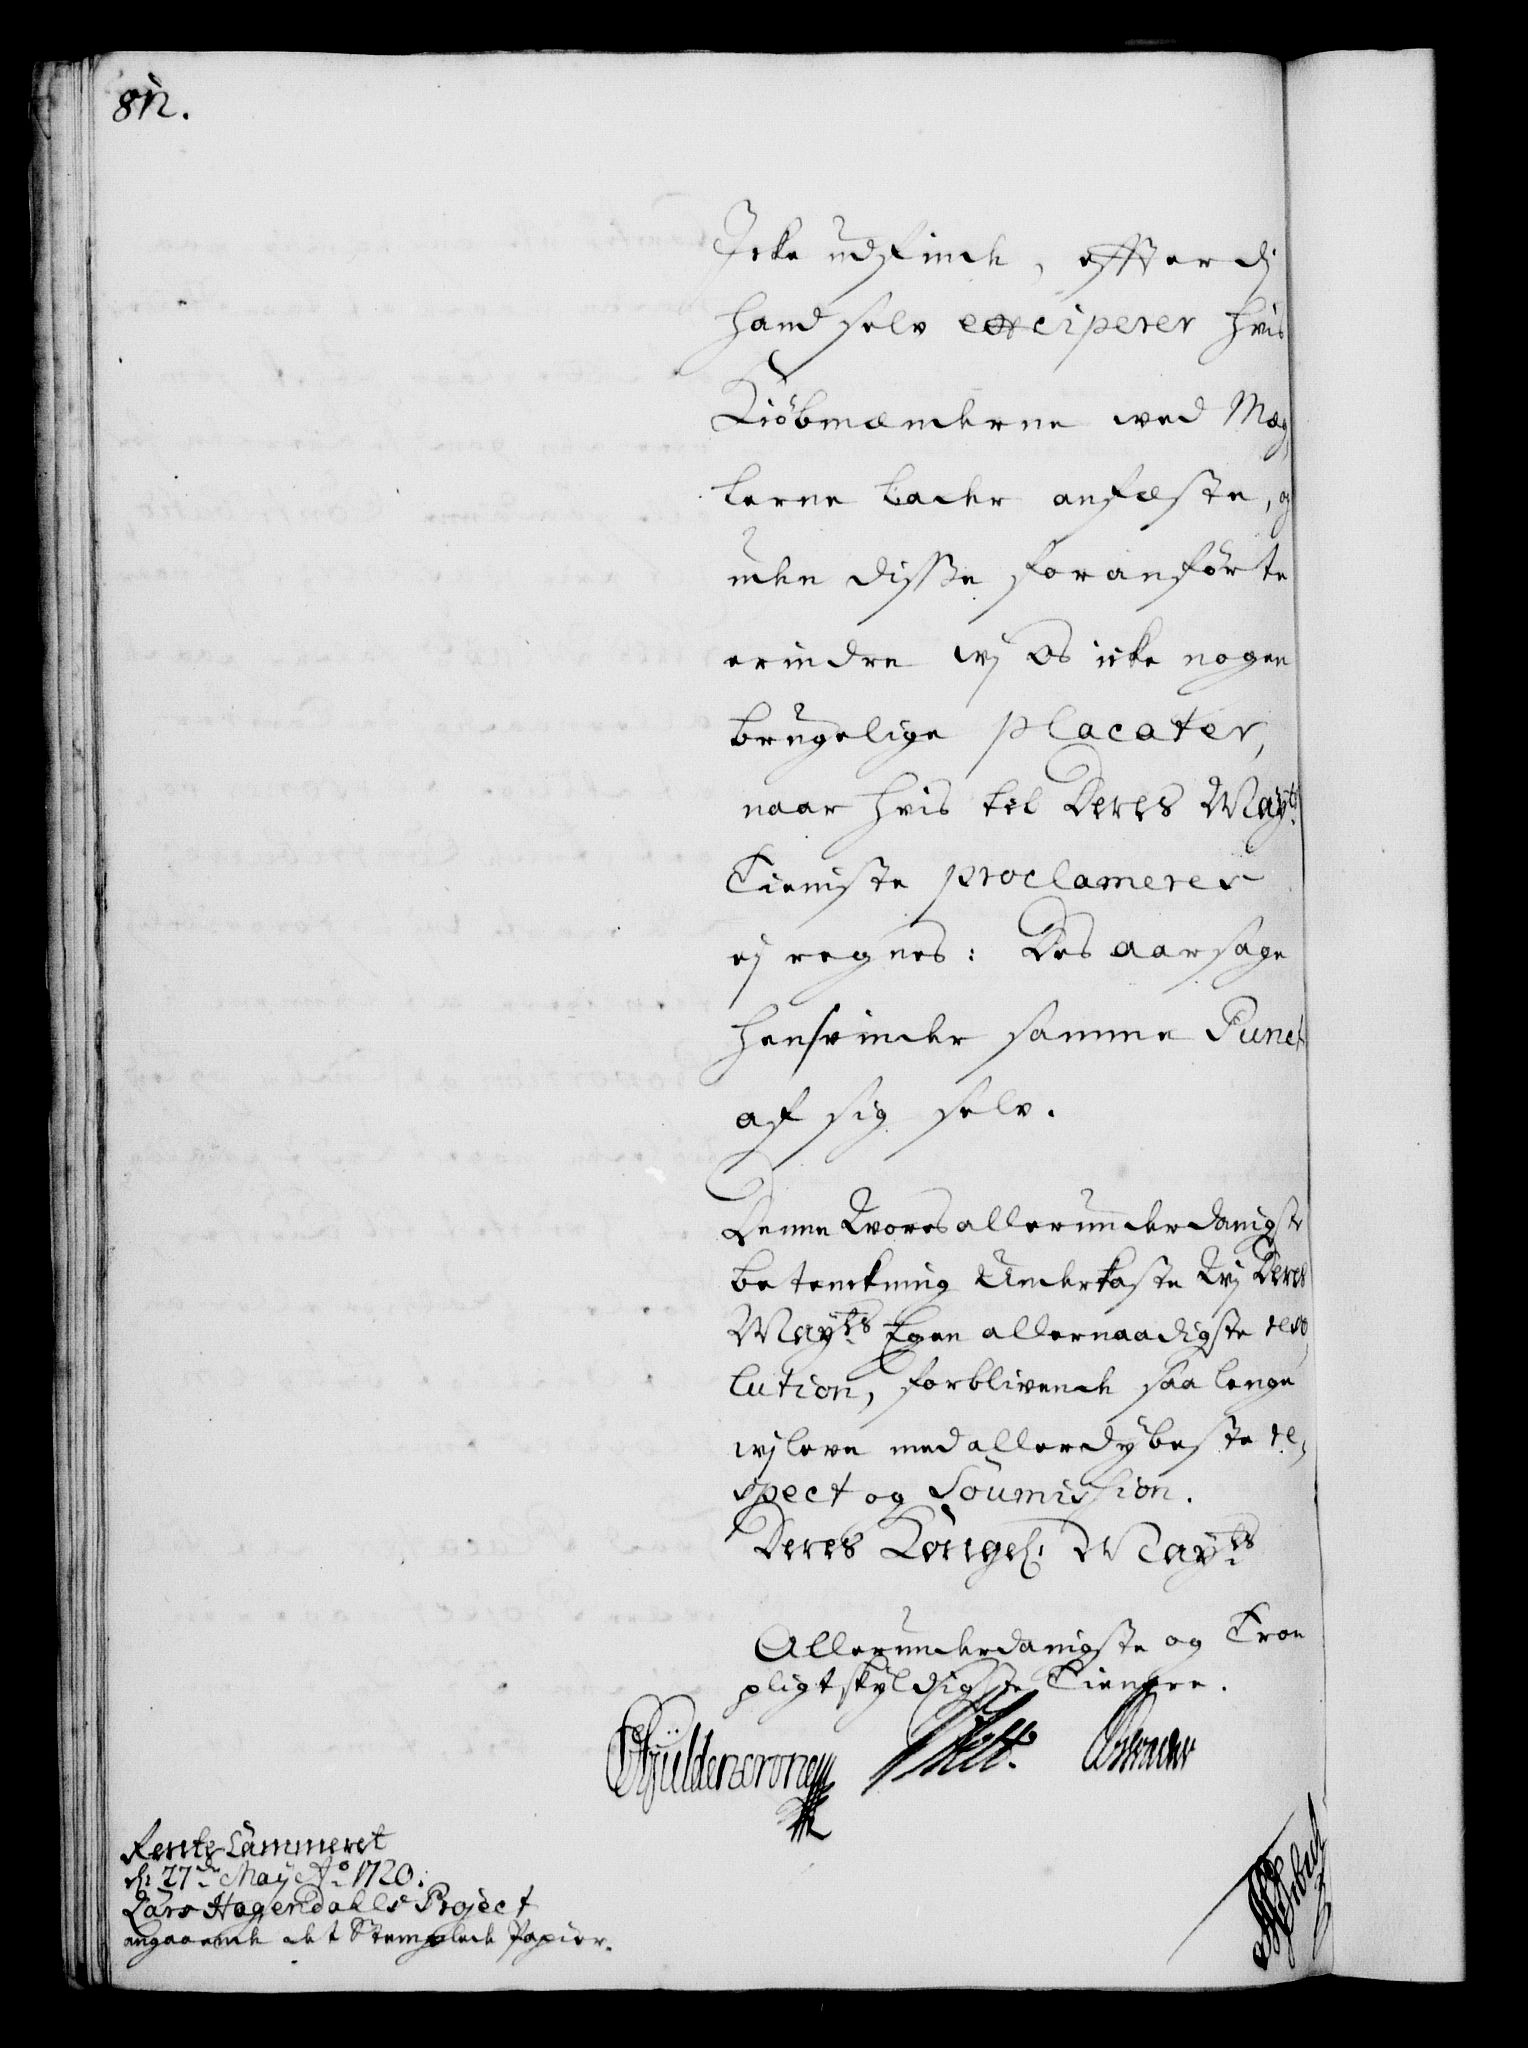 812.
Icke udfinde, effterdj
hand selv exciperer hvis
Kiöbmænderne ved Mæg,
lerne lader anfæste, og
uden disse foranförte
erindre wj os icke nogen
brugelige placater,
naar hvis til Deres Mayts
Tieniste proclameres
ej regnes: Des aarsage
hensvinder samme Punct
af sig selv.
Denne Vores allerunderdanigste
betenckning Underkaste Vi Deres
Mayts Egen allernaadigste reso,
lution, forblivende saa lenge
wj leve med allerdybeste re,
spect og Soumission.
Deres Kongel: Mayts
Allerunderdanigste og Troe
pligtskyldigste Tienere.
Gyldencrone
Rente Cammeret
d: 27de May Ao 1720.
Lars Hagendahls Project
angaaende det Stemplede Papier.